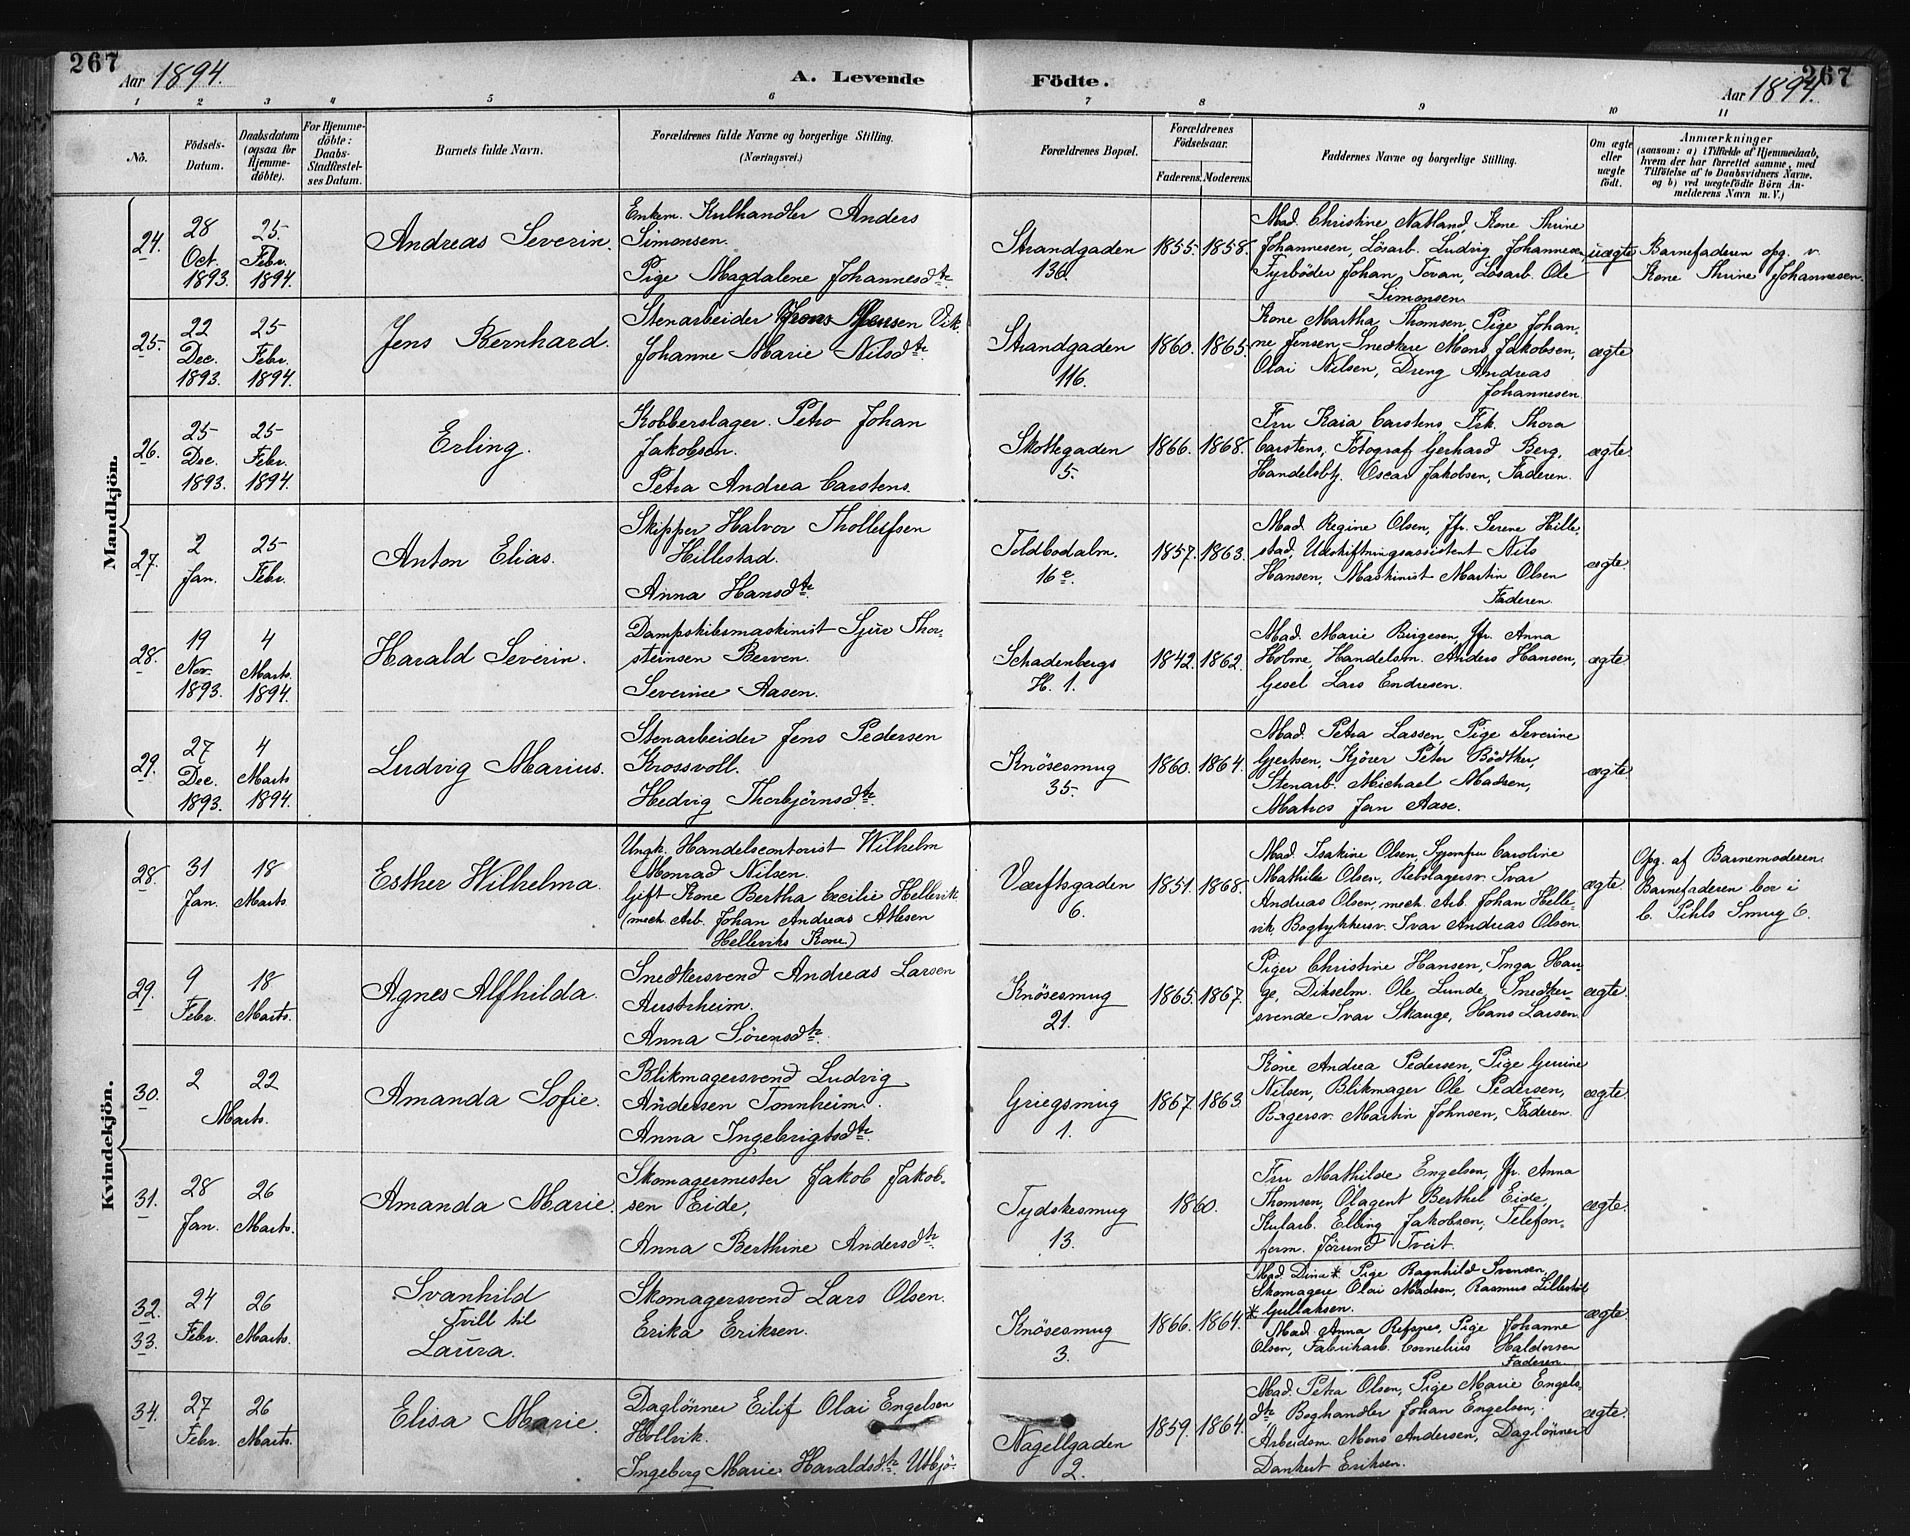 267
Aar 1894.
A. Levende Födte.
Aar 1894.
267
1 2 3 4 5 6 7 8 9 10 11
No.
Födsels-Datum.
Daabsdatum (ogsaa for Hjemme-döbte).
For Hjemme-döbte: Daabs-Stadfæstel-ses Datum.
Barnets fulde Navn.
Forældrenes fulde Navne og borgerlige Stilling.
(Næringsvei.)
Forældrenes Bopæl.
Forældrenes Födselsaar.
Faderens. Moderens.
Faddernes Navne og borgerlige Stilling.
Om ægte eller uægte födt.
Anmærkninger
(saasom: a) i Tilfælde af Hjemmedaab, hvem der har forrettet samme, med Tilföielse af to Daabsvidners Navne. og b) ved uægtefödte Börn An-melderens Navn m. V.)
Mandkjön.
24.
28 Oct. 1893.
25 Febr. 1894.
Andreas Severin.
Enkem. Kulhandler Anders
Simonsen.
Pige Magdalene Johannesdtr.
Strandgaden
136.
1855. 1858.
Mad. Christine Natland, Kone Thrine
Johannesen, Lösarb. Ludvig Johannesen,
Fyrböder Johan Tovan, Lösarb. Ole
Simonsen
uægte
Barnefaderen opg. v.
Kone Thrine Johannesen.
25.
22 Dec. 1893.
25 Febr. 1894.
Jens Bernhard.
Stenarbeider Jens Jensen Vik.
Johanne Marie Nilsdtr
Strandgaden
116.
1860. 1865.
Kone Martha Thomsen, Pige Johan-
ne Jensen, Snedkere Mons Jakobsen,
Olai Nilsen, Dreng Andreas
Johannesen
ægte
26.
25 Dec. 1893.
25 Febr. 1894.
Erling.
Kobberslager. Petro Johan
Jakobsen.
Petra Andrea Carstens.
Skottegaden
5.
1866. 1868.
Fru Kaia Carstens, Frk. Thora
Carstens, Fotograf Gerhard Berg,
Handelsbtj. Oscar Jakobsen, Faderen.
ægte.
27.
2 Jan.
25 Febr.
Anton Elias.
Skipper Halvor Thollefsen
Hillestad.
Anna Hansdtr.
Toldbodalm.
16e.
1857. 1863.
Mad. Regine Olsen, Jfr. Serene Hille-
stad, Udskiftningsassistent Nils
Hansen, Maskinist Martin Olsen
Faderen.
ægte.
28.
19 Nov. 1893.
4 Marts 1894.
Harald Severin.
Dampskibsmaskinist Sjur Thor-
steinsen Berven.
Severine Aasen.
Schadenbergs
H. 1.
1842. 1862.
Mad. Marie Birgesen, Jfr. Anna
Holme, Handelsm. Anders Hansen,
Gesel Lars Endresen.
ægte
29.
27 Dec. 1893.
4 Marts 1894.
Ludvig Marius.
Stenarbeider Jens Pedersen
Krossvoll.
Hedvig Thorbjörnsdtr.
Knösesmug
35.
1860. 1864.
Mad. Petra Lassen, Pige Severine
Gjertsen, Kjörer Peter Bödtker,
Stenarb. Michael Madsen,
Matros Jan Aase.
ægte
Kvindekjön.
28.
31 Jan.
18 Marts
Esther Wilhelma.
Ungk. Handelscontorist Wilhelm
Monrad Nilsen.
Gift Kone Bertha Cecilie Hellevik
(mech. Arb. Johan Andreas Atlesen
Helleviks Kone)
Værftsgaden
6.
1851. 1868.
Mad. Isakine Olsen, Syjomfru Caroline
Mathilde Olsen, Rebslagersv. Ivar
Andreas Olsen, mech. Arb. Johan Helle-
vik, Bogtykkersv. Ivar Andreas Olsen.
ægte
Opg. af Barnemoderen.
Barnefaderen bor i
C. Pihls Smug 6.
29.
9 Febr.
18 Marts.
Agnes Alfhilda.
Snedkersvend Andreas Larsen
Austrheim.
Anna Sörensdtr
Knösesmug
21.
1865. 1867.
Piger Christine Hansen, Inga Hau-
ge, Dikselm. Ole Lunde, Snedker-
svende Ivar Skauge, Hans Larsen.
ægte.
30.
2
22
Marts.
Amanda Sofie.
Blikmagersvend Ludvig
Andersen Tonnheim.
Anna Ingebrigtsdtr.
Griegsmug
1.
1867. 1863.
Kone Andrea Pedersen, Pige Gurine
Nilsen, Blikmager Ole Pedersen,
Bagersv. Martin Johnsen, Faderen.
ægte.
31.
28 Jan.
26 Marts.
Amanda Marie.
Skomagermester Jakob Jakob-
sen Eide,
Anna Berthine Andersdtr.
Tydskesmug
13.
1860.
Fru Mathilde Engelsen, Jfr. Anna
Thomsen, Ölagent Berthel Eide,
Kularb. Elling Jakobsen, Telefon-
form. Jörund Tveit.
ægte.
32.
33.
24 Febr.
26 Marts.
Svanhild
Tvill til
Laura.
Skomagersvend Lars Olsen.
Erika Eriksen.
Knösesmug
3.
1866. 1864.
Mad. Dina * Pige Ragnhild Svensen,
Skomagere Olai Madsen, Rasmus Lillestöl
* Gullaksen.
Mad. Anna Refsnes, Pige Johanne
Olsen, Fabrikarb. Cornelius Haldorsen
Faderen
ægte.
34.
27 Febr.
26 Marts.
Elisa Marie.
Daglönner Eilif Olai Engelsen
Hollvik.
Ingeborg Marie Haraldsdtr. Utbjö.
Nagellgaden
2.
1859. 1864.
Mad. Petra Olsen, Pige Marie Engels-
dtr, Boghandler Johan Engelsen,
Arbeidsm. Mons Andersen, Daglönner
Dankert Eriksen.
ægte.